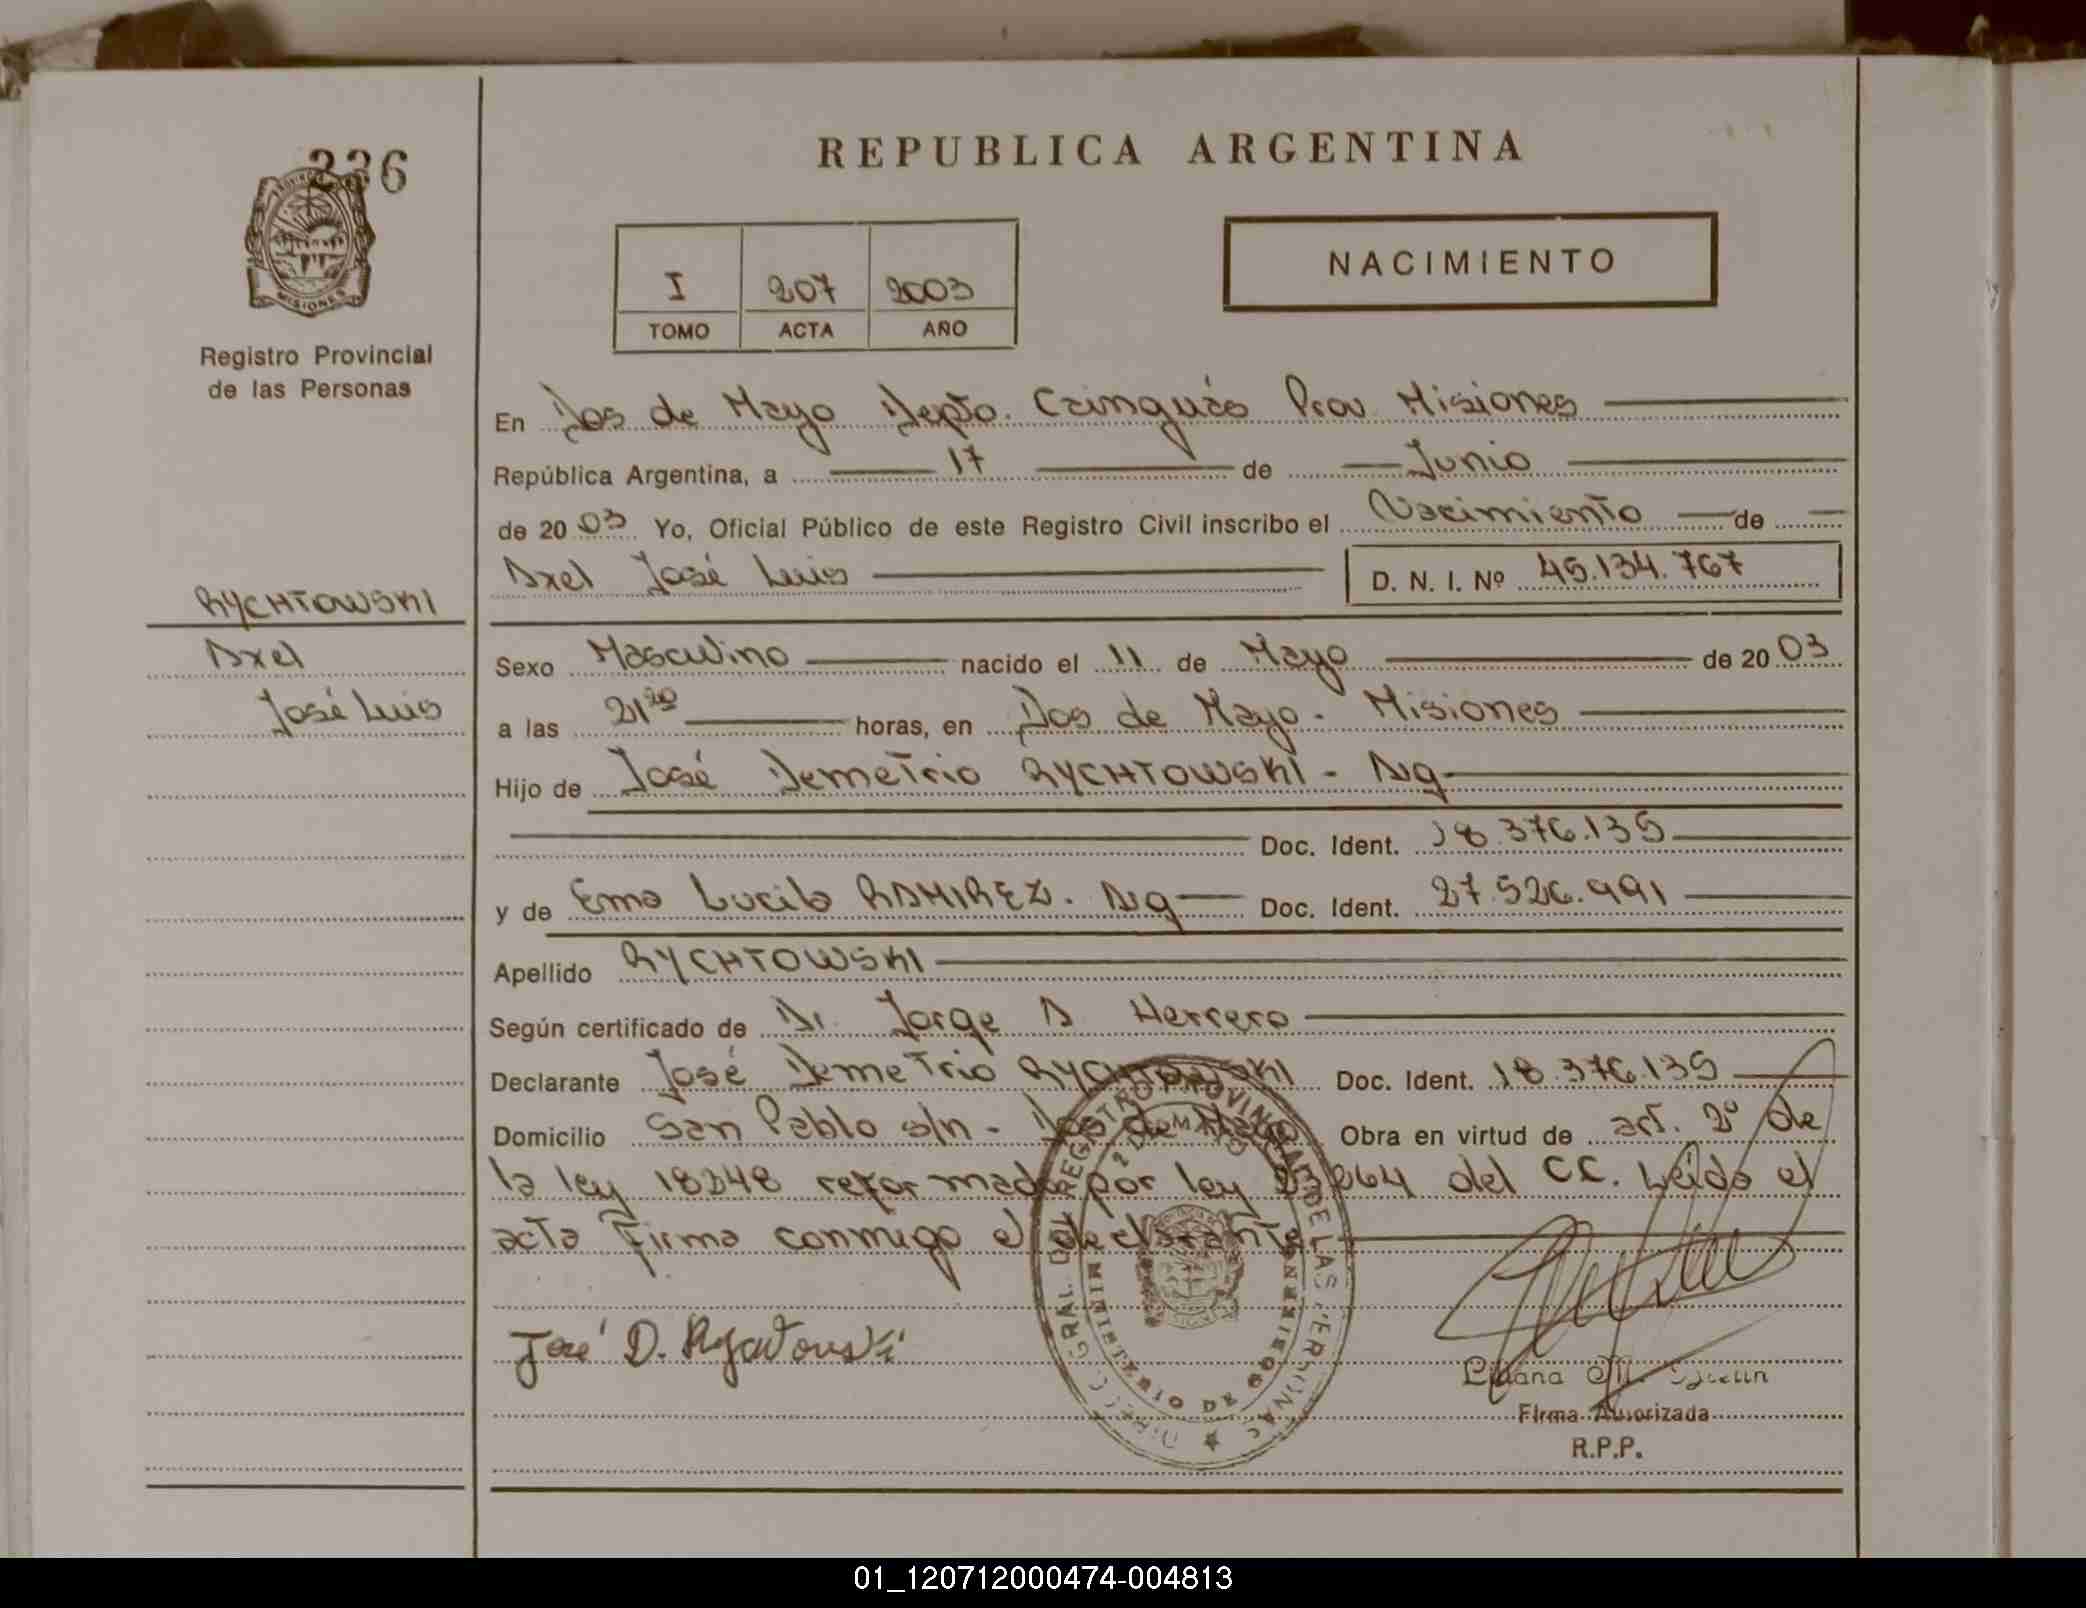 336
REPUBLICA ARGENTINA
MISIONES
Registro Provincial
de las Personas
I 207 2003
TOMO ACTA AÑO
NACIMIENTO
En Dos de Mayo Depto. Cainguás Prov. Misiones
República Argentina, a 17 de Junio
de 2003 Yo, Oficial Público de este Registro Civil inscribo el Nacimiento de
Axel José Luis D. N. I. Nº 45.134.767
RYCHTOWSKI
Axel
José Luis
Sexo Masculino nacido el 11 de Mayo de 2003
a las 21 20 horas, en Dos de Mayo - Misiones
Hijo de José Demetrio RYCHTOWSKI - Arg
Doc. Ident. 18.376.135
y de Ema Lucila RAMIREZ. Arg Doc. Ident. 27.526.991
Apellido RYCHTOWSKI
Según certificado de Dr. Jorge A Herrero
Declarante José Demetrio RYCHTOWSKI Doc. Ident. 18.376.135
Domicilio San Pablo s/n - Dos de Mayo Obra en virtud de art. 2º de
la ley 18248 reformada por ley 23264 del CC. Leída el
acta Firma conmigo el declarante
DIREC. GRAL. DEL REGISTRO PROVINCIAL DE LAS PERSONAS
MINISTERIO DE GOBIERNO
José D. Rychtouski
Liliana M.
Firma Autorizada
R.P.P.
01_120712000474-004813